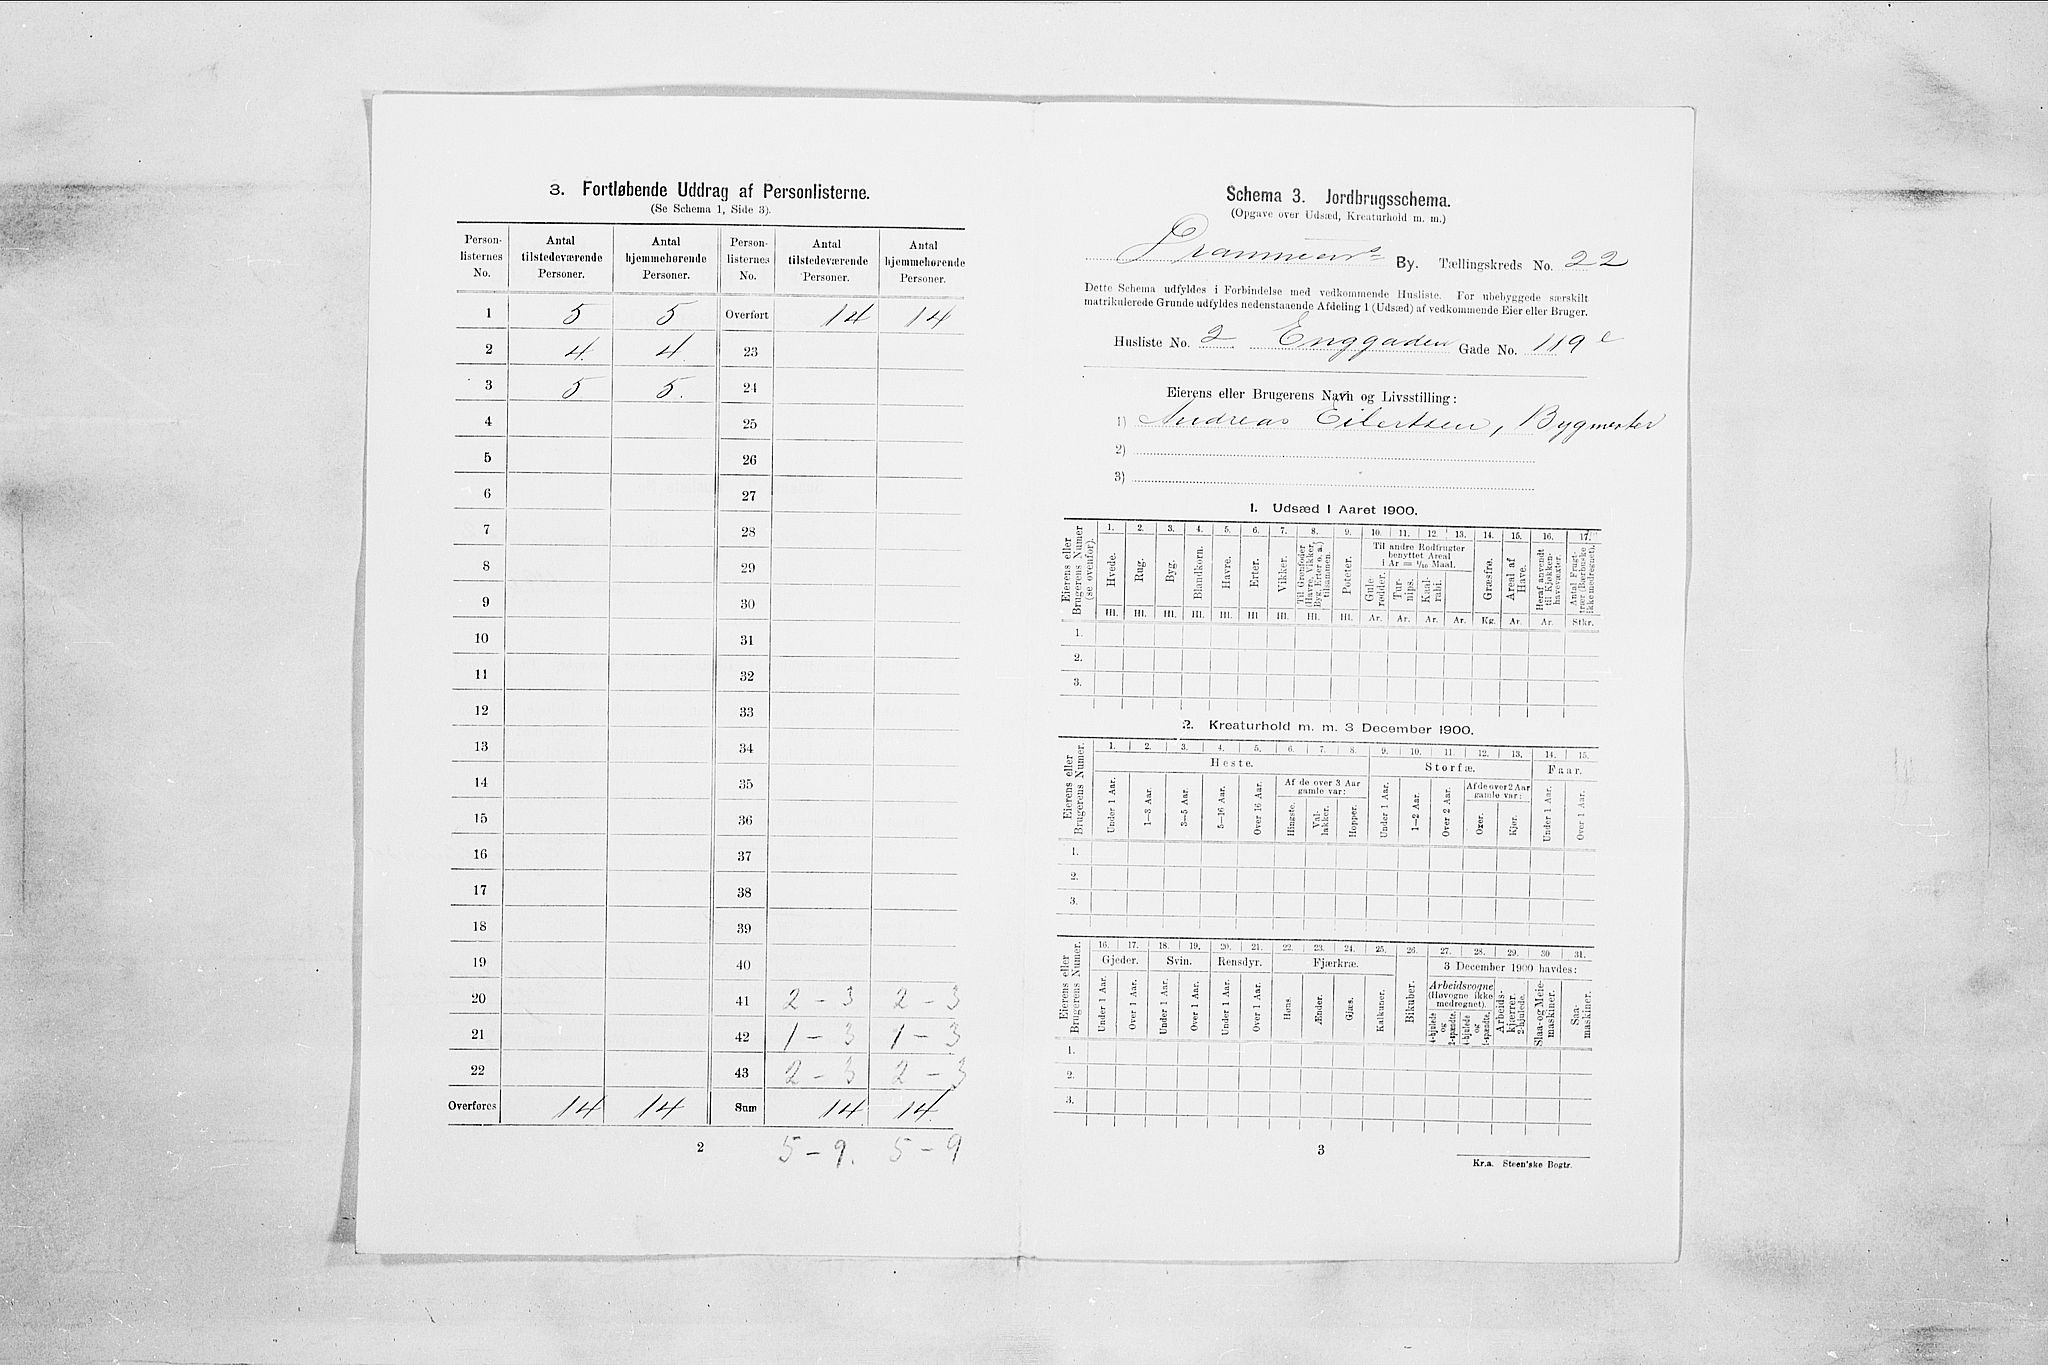 3. Fortløbende Uddrag af Personlisterne.
(Se Schema 1, Side 3).
Person-listernes No. | Antal tilstedeværende Personer. | Antal hjemmehørende Personer. | Person-listernes No. | Antal tilstedeværende Personer. | Antal hjemmehørende Personer.
1 | 5 | 5 | Overført | 14 | 14
2 | 4. | 4. | 23
3 | 5 | 5. | 24
4 | 25
5 | 26
6 | 27
7 | 28
8 | 29
9 | 30
10 | 31
11 | 32
12 | 33
13 | 34
14 | 35
15 | 36
16 | 37
17 | 38
18 | 39
19 | 40
20 | 41 | 2 - 3 | 2 - 3
21 | 42 | 1 - 3 | 1 - 3
22 | 43 | 2 - 3 | 2 - 3
Overføres | 14 | 14 | Sum | 14. | 14.
2
5 - 9. 5 - 9
Schema 3. Jordbrugsschema.
(Opgave over Udsæd, Kreaturhold m. m.)
Drammens By. Tællingskreds No. 22
Dette Schema udfyldes i Forbindelse med vedkommende Husliste. For ubebyggede særskilt
matrikulerede Grunde udfyldes nedenstaaende Afdeling 1 (Udsæd) af vedkommende Eier eller Bruger.
Husliste No. 2. Enggaden Gade No. 119 c
Eierens eller Brugerens Navn og Livsstilling:
1) Andreas Eilertsen, Bygmester
2)
3)
1. Udsæd i Aaret 1900.
Eierens eller Brugerens Numer (se ovenfor).
1. 2. 3. 4. 5. 6. 7. 8. 9. 10. 11. 12. 13. 14. 15. 16. 17.
Hvede. Rug. Byg. Blandkorn. Havre. Erter. Vikker. Til Grønfoder (Havre, Vikker, Byg, Erter o. a.) tilsammen. Poteter.
Til andre Rodfrugter benyttet Areal i Ar = 1/10 Maal.
Gule-rødder. Tur-nips. Kaal-rabi.
Græsfrø. Areal af Have. Heraf anvendt til Kjøkken-havevæxter. Antal Frugt-trær (Bærbuske ikke medregnet).
Hl. Hl. Hl. Hl. Hl. Hl Hl. Hl. Hl. Ar. Ar. Ar. Ar. Kg. Ar. Ar. Stkr.
1.
2.
3.
2. Kreaturhold m. m. 3 December 1900.
Eierens eller Brugerens Numer.
1. 2. 3. 4. 5. 6. 7. 8. 9. 10. 11. 12. 13. 14. 15.
Heste. Storfæ. Faar.
Under 1 Aar. 1—3 Aar. 3—5 Aar. 5—16 Aar. Over 16 Aar.
Af de over 3 Aar gamle var:
Hingste. Val-lakker. Hopper.
Under 1 Aar. 1—2 Aar. Over 2 Aar.
Af de over 2 Aar gamle var:
Oxer. Kjør.
Under 1 Aar. Over 1 Aar.
1.
2
3.
Eierens eller Brugerens Numer.
16. 17. 18. 19. 20. 21. 22. 23. 24. 25. 26. 27. 28. 29. 30 31.
Gjeder. Svin. Rensdyr. Fjærkræ. Bikuber. 3 December 1900 havdes:
Under 1 Aar. Over 1 Aar. Under 1 Aar. Over 1 Aar. Under 1 Aar. Over 1 Aar.
Høns. Ænder. Gjæs. Kalkuner.
Arbeidsvogne (Høvogne ikke medregnet).
4-hjulede og 2-spændte. 4-hjulede og 1-spændte.
Arbeids-kjærrer, 2-hjulede. Slaa- og Meie-maskiner. Saa-maskiner.
1.
2.
3.
3
Kr.a. Steen'ske Bogtr.